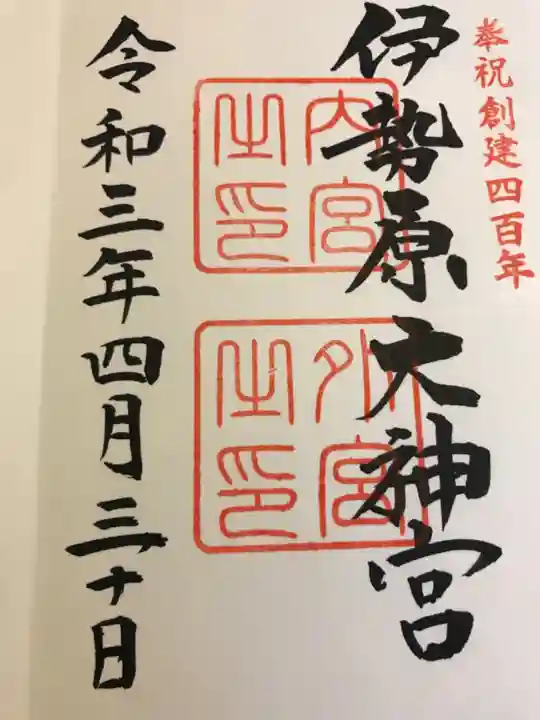 奉祝創建四百年
伊勢原大神宮
内宮
之印
外宮
之印
令和三年四月三十日